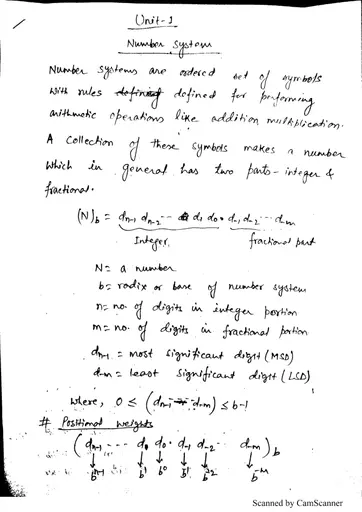 Unit-1
Number System
Number systems are ordered set of symbols
with rules defining defined for performing
arithmetic operations like addition multiplication.
A collection of these symbols makes a number
which in general has two parts - integer &
fractional.
(N)b = dn-1 dn-2 --- d1 d0 . d-1 d-2 --- d-m
Integer, fractional part
N = a number
b = radix or base of number system
n = no. of digits in integer portion
m = no. of digits in fractional portion
dn-1 = most significant digit (MSD)
d-m = least significant digit (LSD)
where, 0 ≤ (dn-1 d-m) ≤ b-1
# Positional weights
(dn-1 --- d1 d0 . d-1 d-2 d-m)b
↓ ↓ ↓ ↓ ↓ ↓
bn-1 b1 b0 b-1 b-2 b-m
Scanned by CamScanner